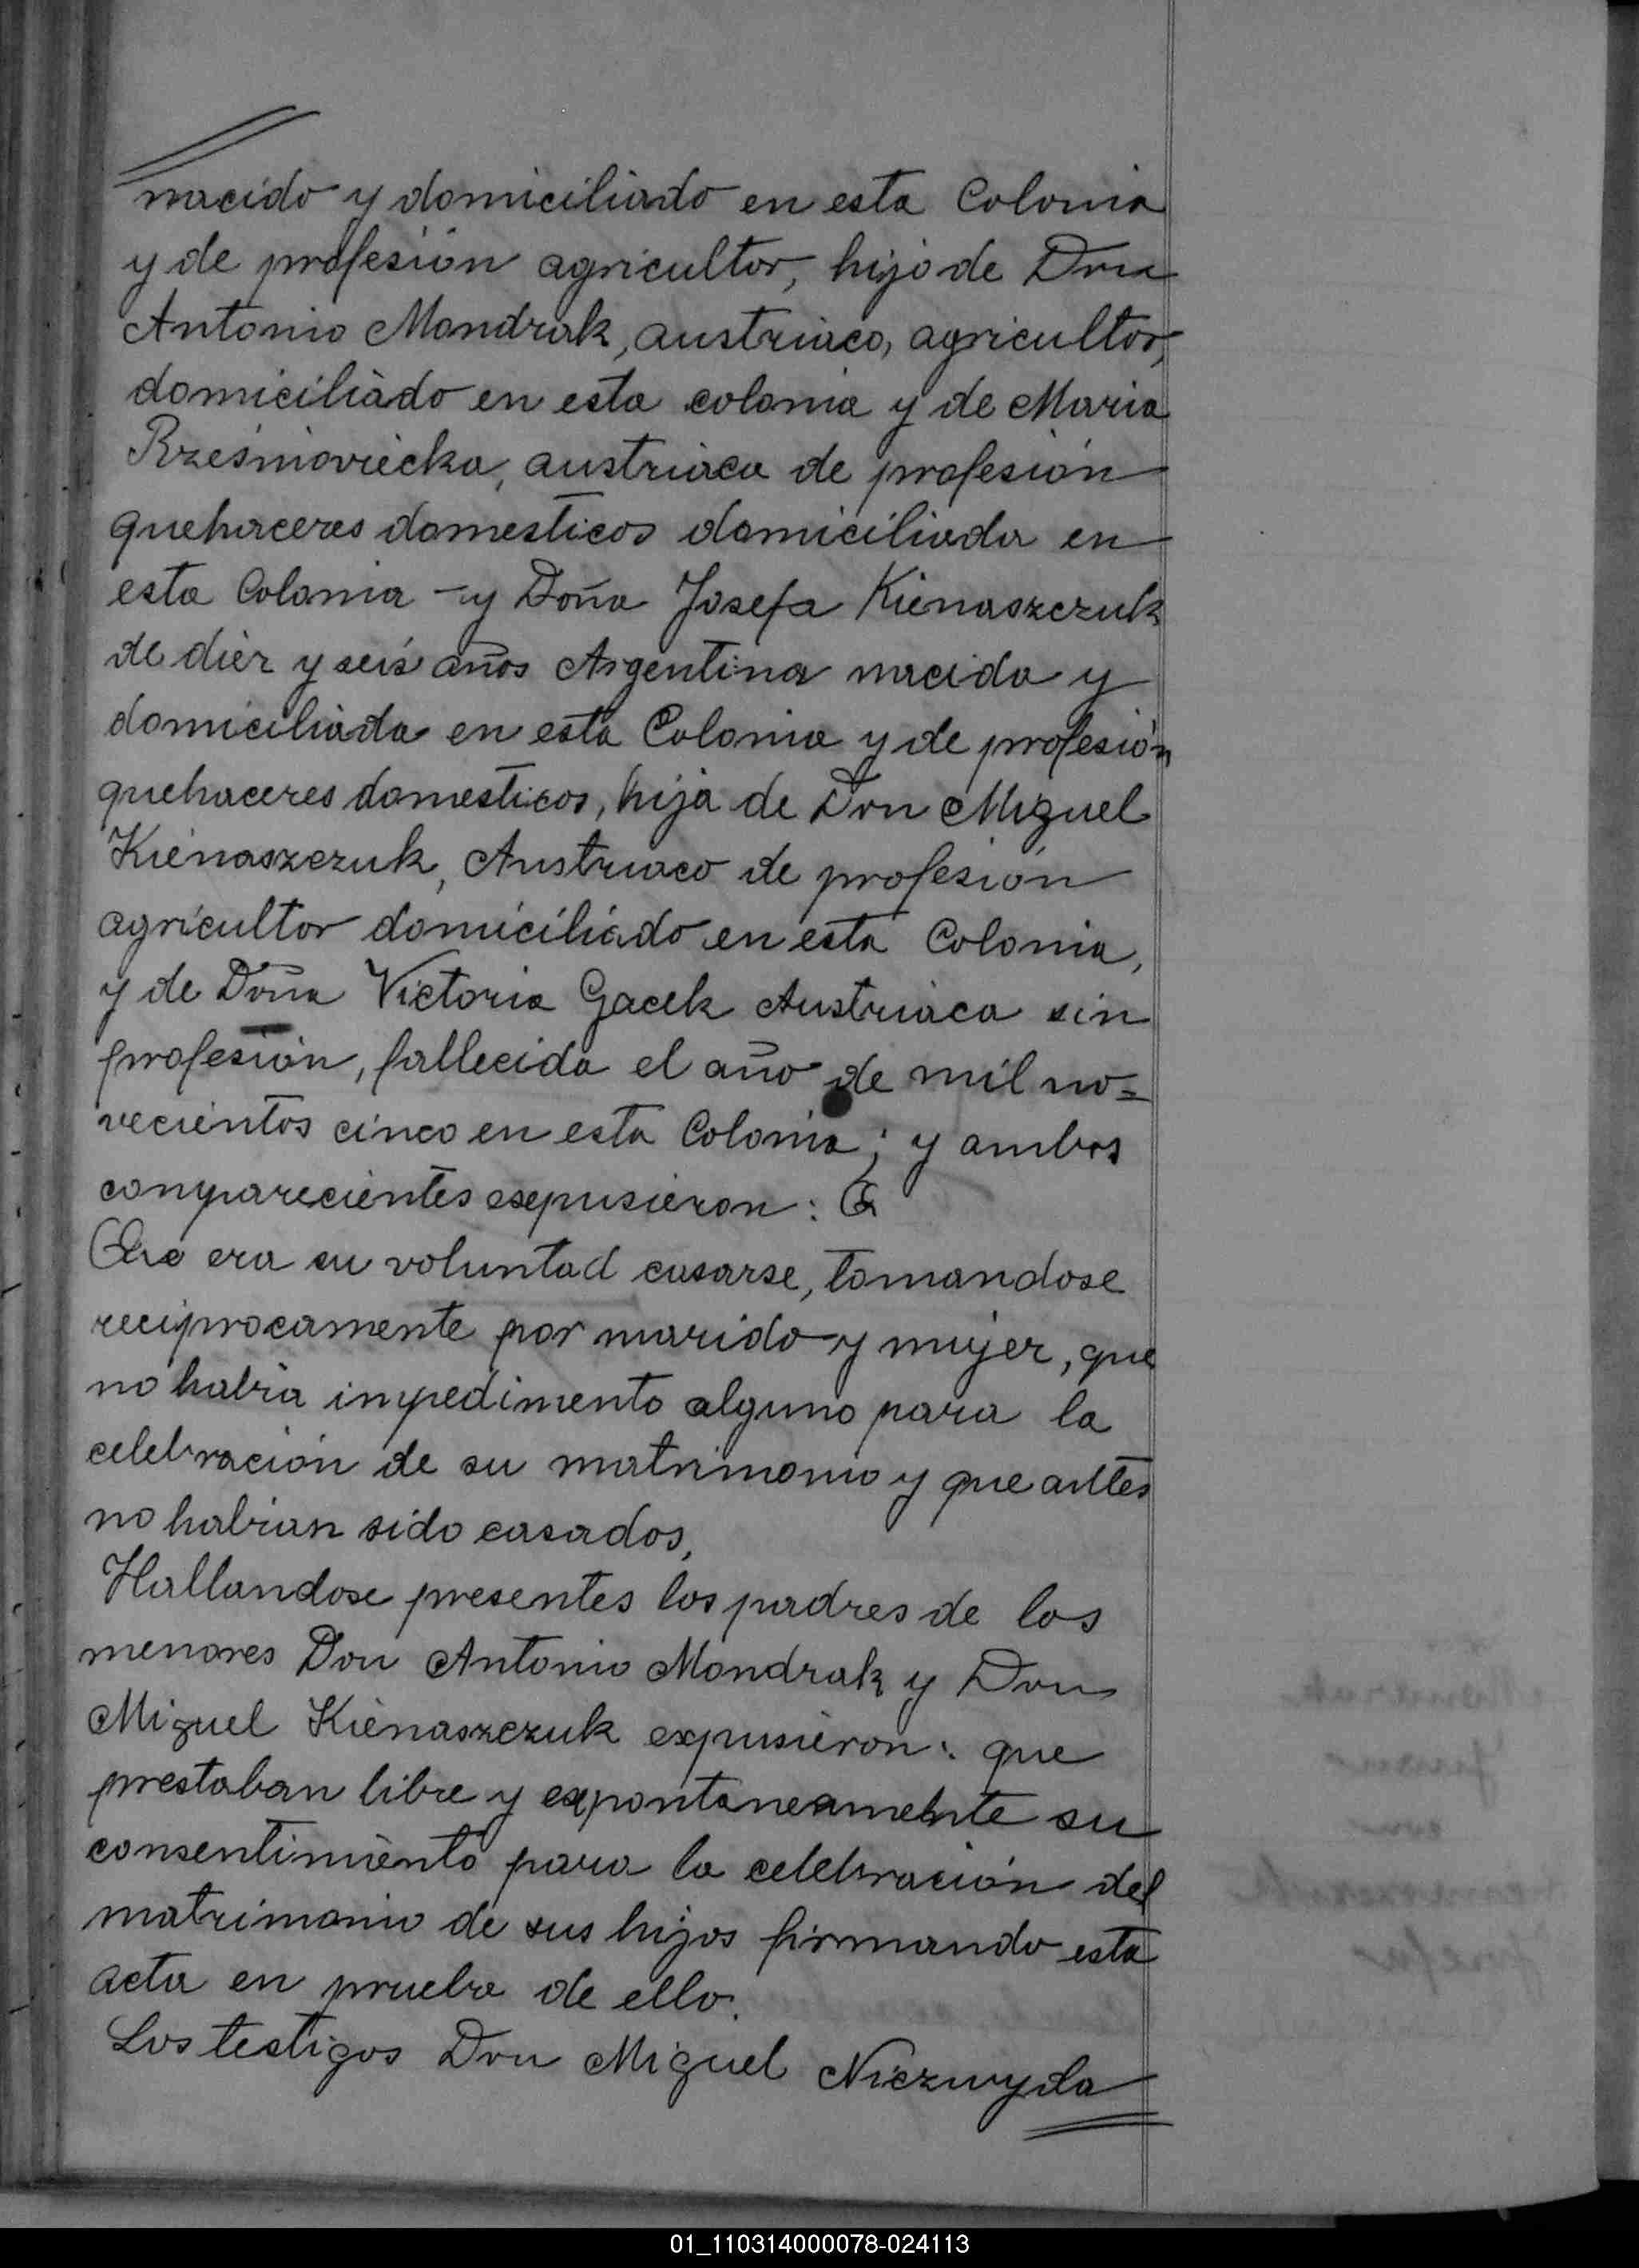 nacido y domiciliado en esta Colonia
y de profesión agricultor, hijo de Don
Antonio Mondrak, austriaco, agricultor,
domiciliado en esta colonia y de Maria
austriaca de profesión
quehaceres domesticos domiciliada en
esta Colonia - y Doña Josefa Kienaszczuk
de diez y seis años Argentina nacida y
domiciliada en esta Colonia y de profesión
quehaceres domesticos, hija de Don Miguel
Kienaszczuk, Austriaco de profesión
agricultor domiciliado en esta Colonia,
y de Doña Victoria Gacek Austriaca sin
profesión, fallecida el año de mil no=
vecientos cinco en esta Colonia; y ambos
comparecientes esepusieron:
Que era su voluntad casarse, tomandose
reciprocamente por marido y mujer, que
no habia impedimento alguno para la
celebración de su matrimonio y que antes
no habian sido casados,
Hallandose presentes los padres de los
menores Don Antonio Mondrak y Don
Miguel Kienaszczuk expusieron: que
prestaban libre y expontaneamente su
consentimiento para la celebración del
matrimonio de sus hijos firmando esta
acta en prueba de ello.
Los testigos Don Miguel Niezwyda
01_110314000078-024113